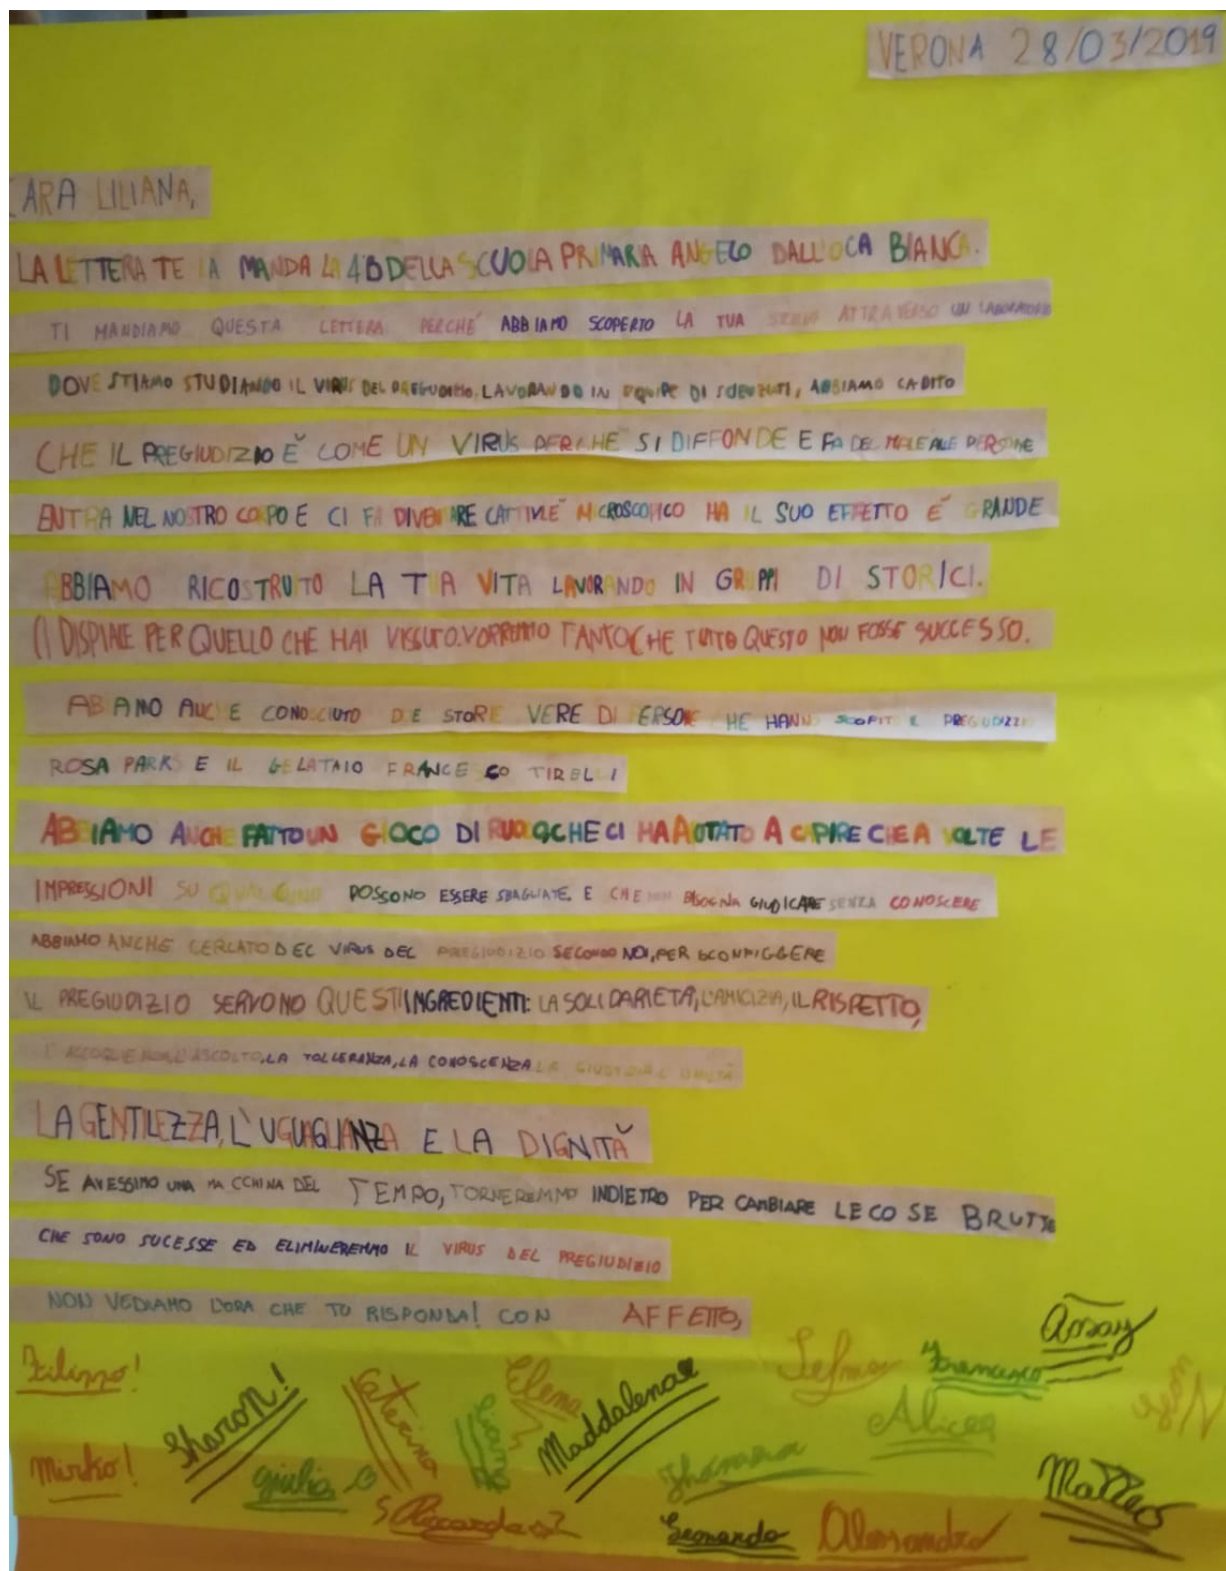 VERONA 28/03/2019
CARA LILIANA,
LA LETTERA TE LA MANDA LA 4B DELLA SCUOLA PRIMARIA ANGELO DALL'OCA BIANCA.
TI MANDIAMO QUESTA LETTERA PERCHE' ABBIAMO SCOPERTO LA TUA STORIA ATTRAVERSO UN LABORATORIO
DOVE STIAMO STUDIANDO IL VIRUS DEL PREGUDIZIO. LAVORANDO IN EQUIPE DI SCIENZIATI, ABBIAMO CAPITO
CHE IL PREGIUDIZIO E' COME UN VIRUS PERCHE SI DIFFONDE E FA DEL MALE ALLE PERSONE
ENTRA NEL NOSTRO CORPO E CI FA DIVENTARE CATTIVI E' MICROSCOPICO HA IL SUO EFFETTO E' GRANDE
ABBIAMO RICOSTRUITO LA TUA VITA LAVORANDO IN GRUPPI DI STORICI.
CI DISPIACE PER QUELLO CHE HAI VISSUTO. VORREMMO TANTO CHE TUTTO QUESTO NON FOSSE SUCCESSO.
ABBIAMO ANCHE CONOSCIUTO DUE STORIE VERE DI PERSONE CHE HANNO IL PREGIUDIZIO
ROSA PARKS E IL GELATAIO FRANCESCO TIRELLI
ABBIAMO ANCHE FATTO UN GIOCO DI RUOLO CHE CI HA AIUTATO A CAPIRE CHE A VOLTE LE
IMPRESSIONI SU QUALCUNO POSSONO ESSERE SBAGLIATE. E CHE NON BISOGNA GIUDICARE SENZA CONOSCERE
ABBIAMO ANCHE CERCATO DEL VIRUS DEL PREGIUDIZIO SECONDO NOI, PER SCONFIGGERE
IL PREGIUDIZIO SERVONO QUESTI INGREDIENTI: LA SOLIDARIETÀ, L'AMICIZIA, IL RISPETTO,
L'ASCOLTO, LA TOLLERANZA, LA CONOSCENZA LA GIUSTIZIA L'UMILTÀ
LA GENTILEZZA, L'UGUAGLIANZA E LA DIGNITÀ
SE AVESSIMO UNA MACCHINA DEL TEMPO, TORNEREMMO INDIETRO PER CAMBIARE LE COSE BRUTTE
CHE SONO SUCESSE ED ELIMINEREMMO IL VIRUS DEL PREGIUDIZIO
NON VEDIAMO L'ORA CHE TU RISPONDA! CON AFFETTO,
Filippo! Sharon! Caterina Elena Maddalena Francesco
Mirko! Giulia Thamara Alice Matteo
Riccardo Leonardo Alessandro